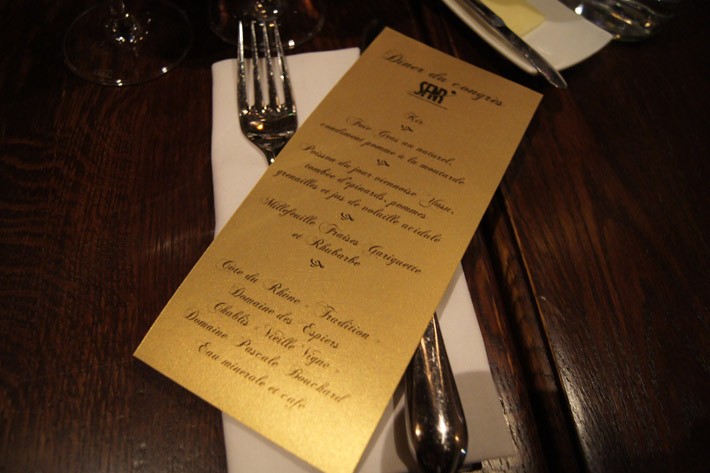 Dîner du congrès
SFAR
Kir
Foie Gras au naturel,
condiment pomme à la moutarde
Poisson du jour viennoise Yuzu,
tombée d'épinards, pommes
grenailles et jus de volaille acidulé
Millefeuille Fraises Gariguette
et Rhubarbe
Côte du Rhône - Tradition -
Domaine des Espiers
Chablis - Vieille Vigne -
Domaine Pascale Bouchard
Eau minerale et café